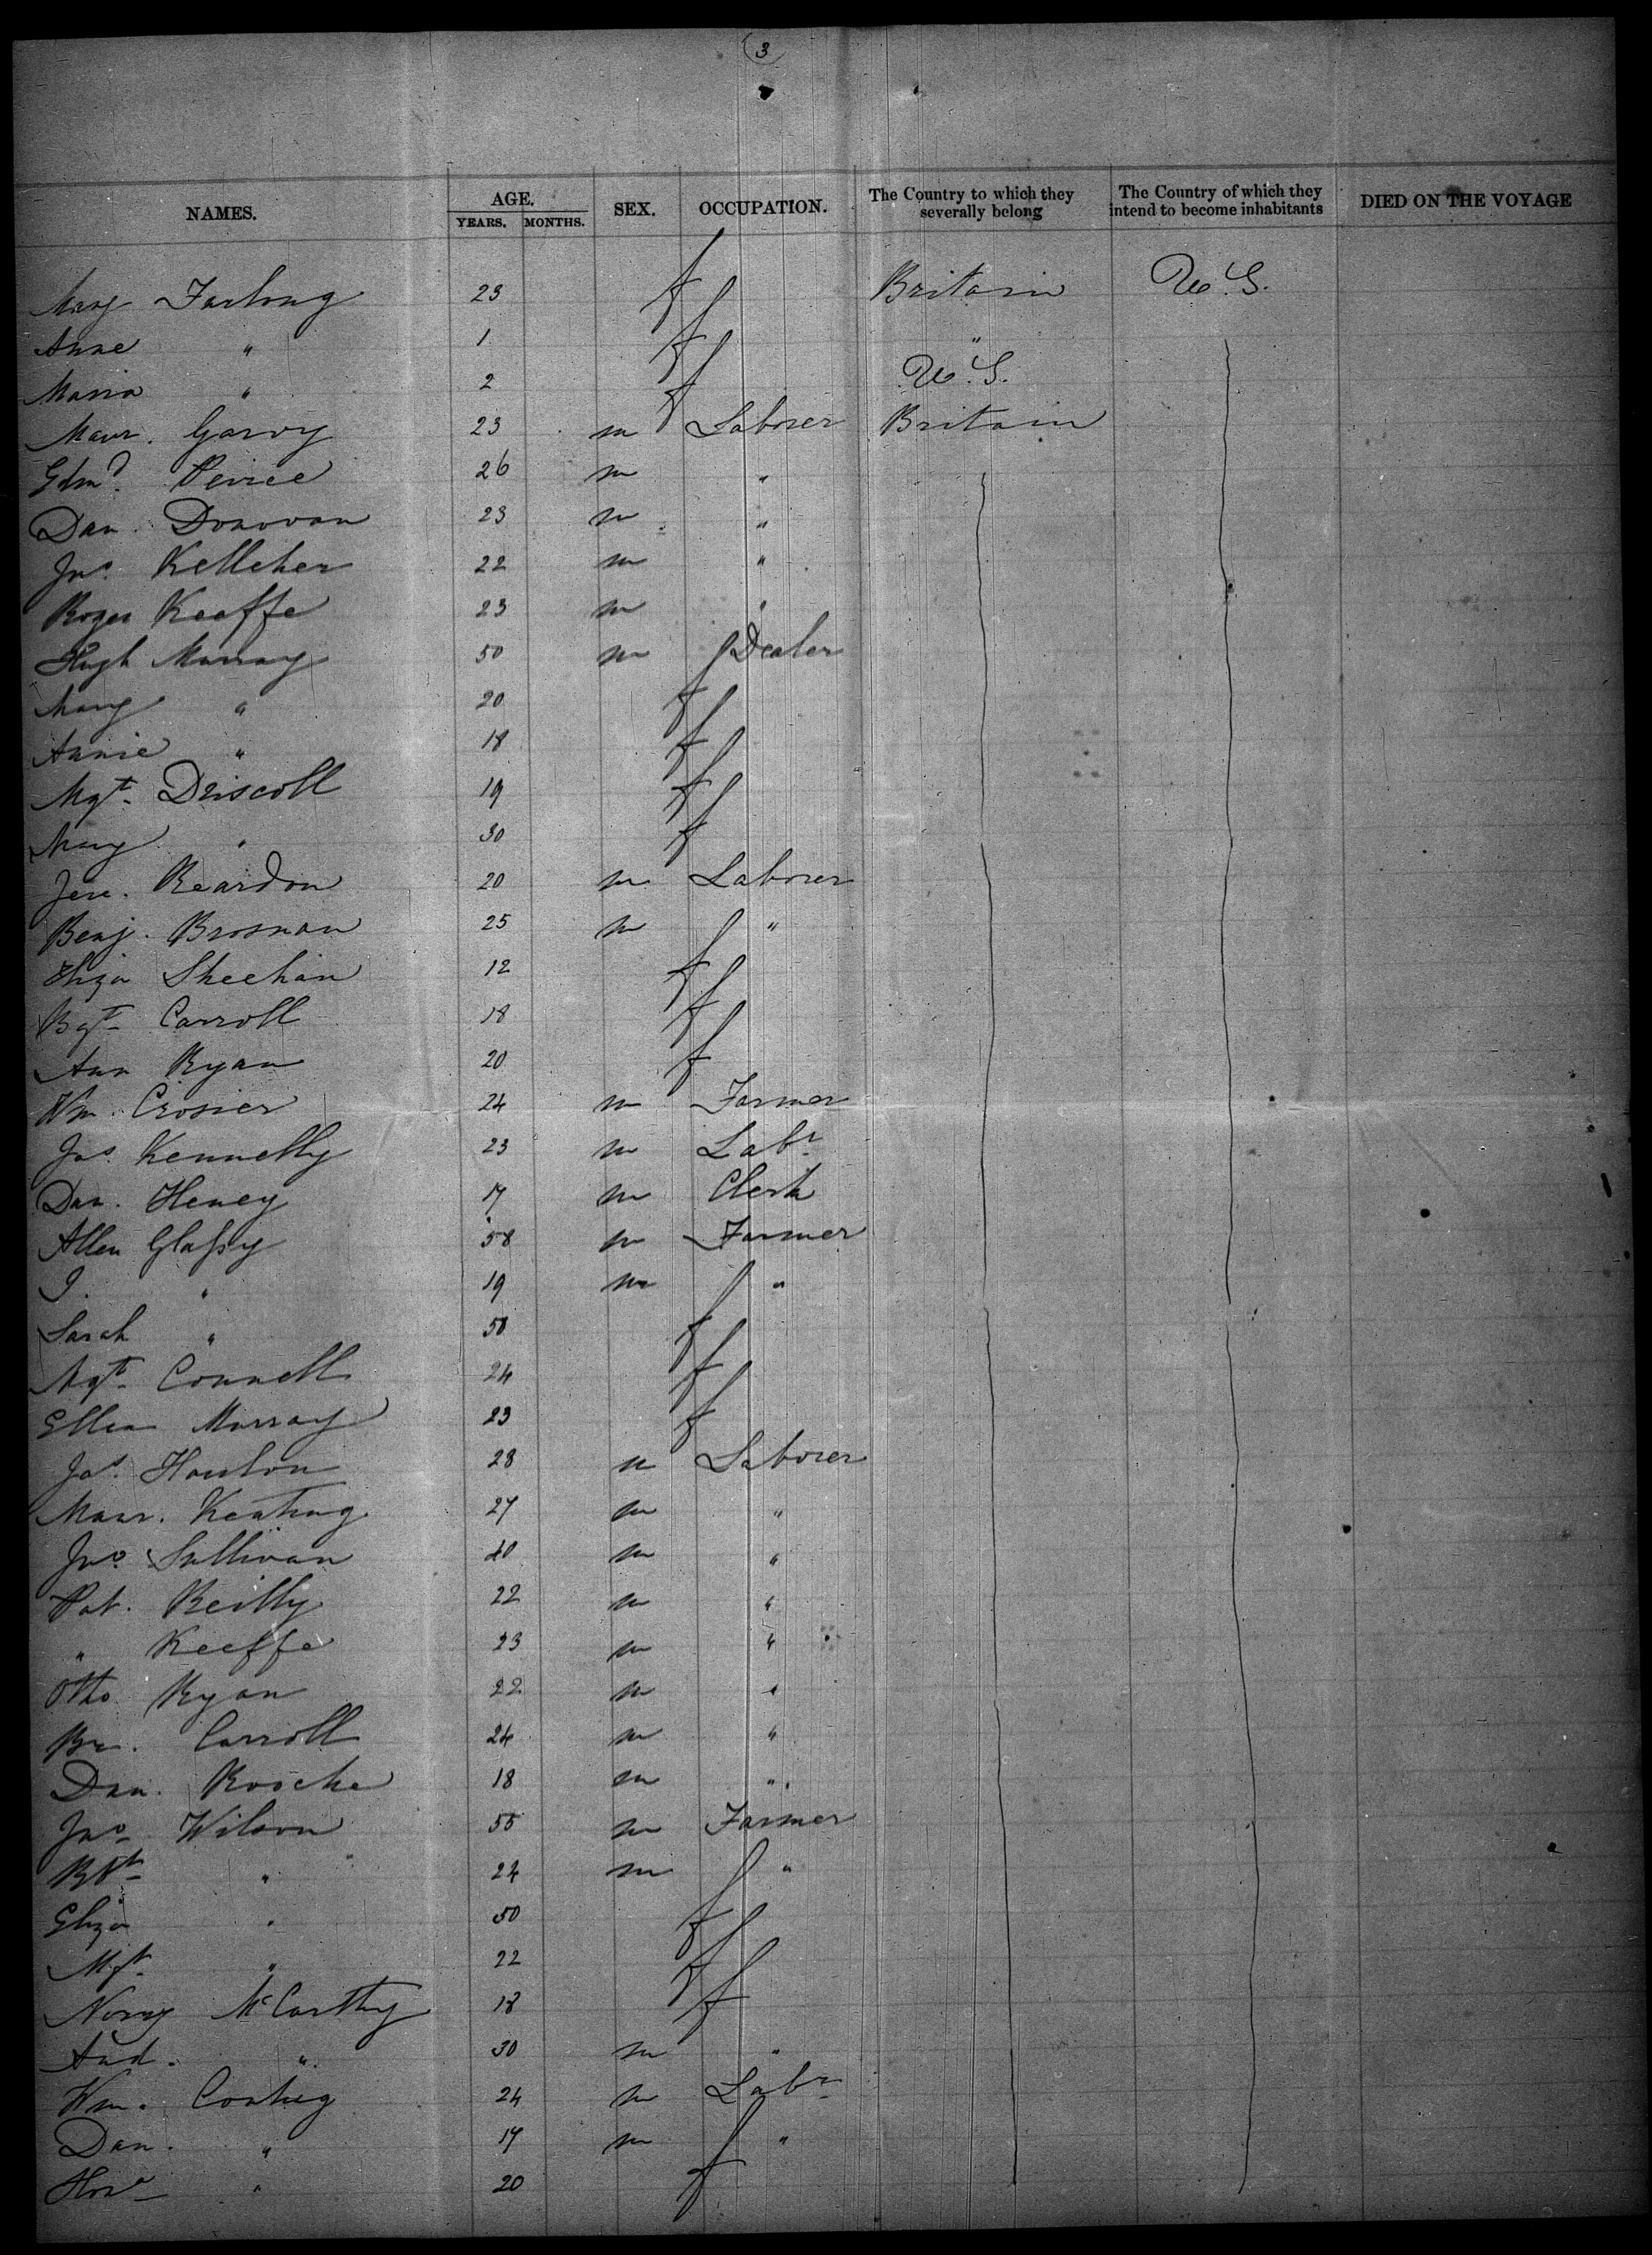 3
NAMES. AGE. YEARS. MONTHS. SEX. OCCUPATION. The Country to which they severally belong The Country of which they intend to become inhabitants DIED ON THE VOYAGE
Mary Furlong 23 f Britain U.S.
Anne " 1 f "
Maria " 2 f U.S.
Maur. Garvy 23 m Laborer Britain
Edmd. Peirce 26 m "
Dan. Donovan 23 m "
Jno. Kelleher 22 m "
Roger Keaffe 23 m "
Hugh Murray 50 m Dealer
Mary " 20 f
Annie " 18 f
Mgt. Driscoll 19 f
Mary " 30 f
Jere. Reardon 20 m Laborer
Benj. Brosnan 25 m "
Eliza Sheehan 12 f
Bgt. Carroll 18 f
Ann Ryan 20 f
Wm. Crosier 24 m Farmer
Jas. Kennelly 23 m Labr.
Dan. Heney 17 m Clerk
Allen Glassy 58 m Farmer
J. " 19 m "
Sarah " 50 f
Mgt. Connell 24 f
Ellen Murray 23 f
Jas. Hanlon 28 m Laborer
Maur. Keating 27 m "
Jno. Sullivan 40 m "
Pat. Reilly 22 m "
" Keeffe 23 m "
Otho Ryan 22 m "
Carroll 24 m "
Dan. Rooche 18 m "
Jno. Wilson 55 m Farmer
Rbt. " 24 m "
Eliza " 50 f
Mgt. " 22 f
Norry McCarthy 18 f
And. " 30 m "
Wm. Costig 24 m Labr.
Dan. " 17 m "
Hona " 20 f